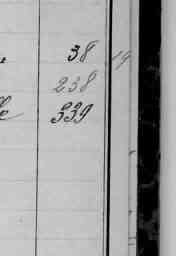 38 19
238
339